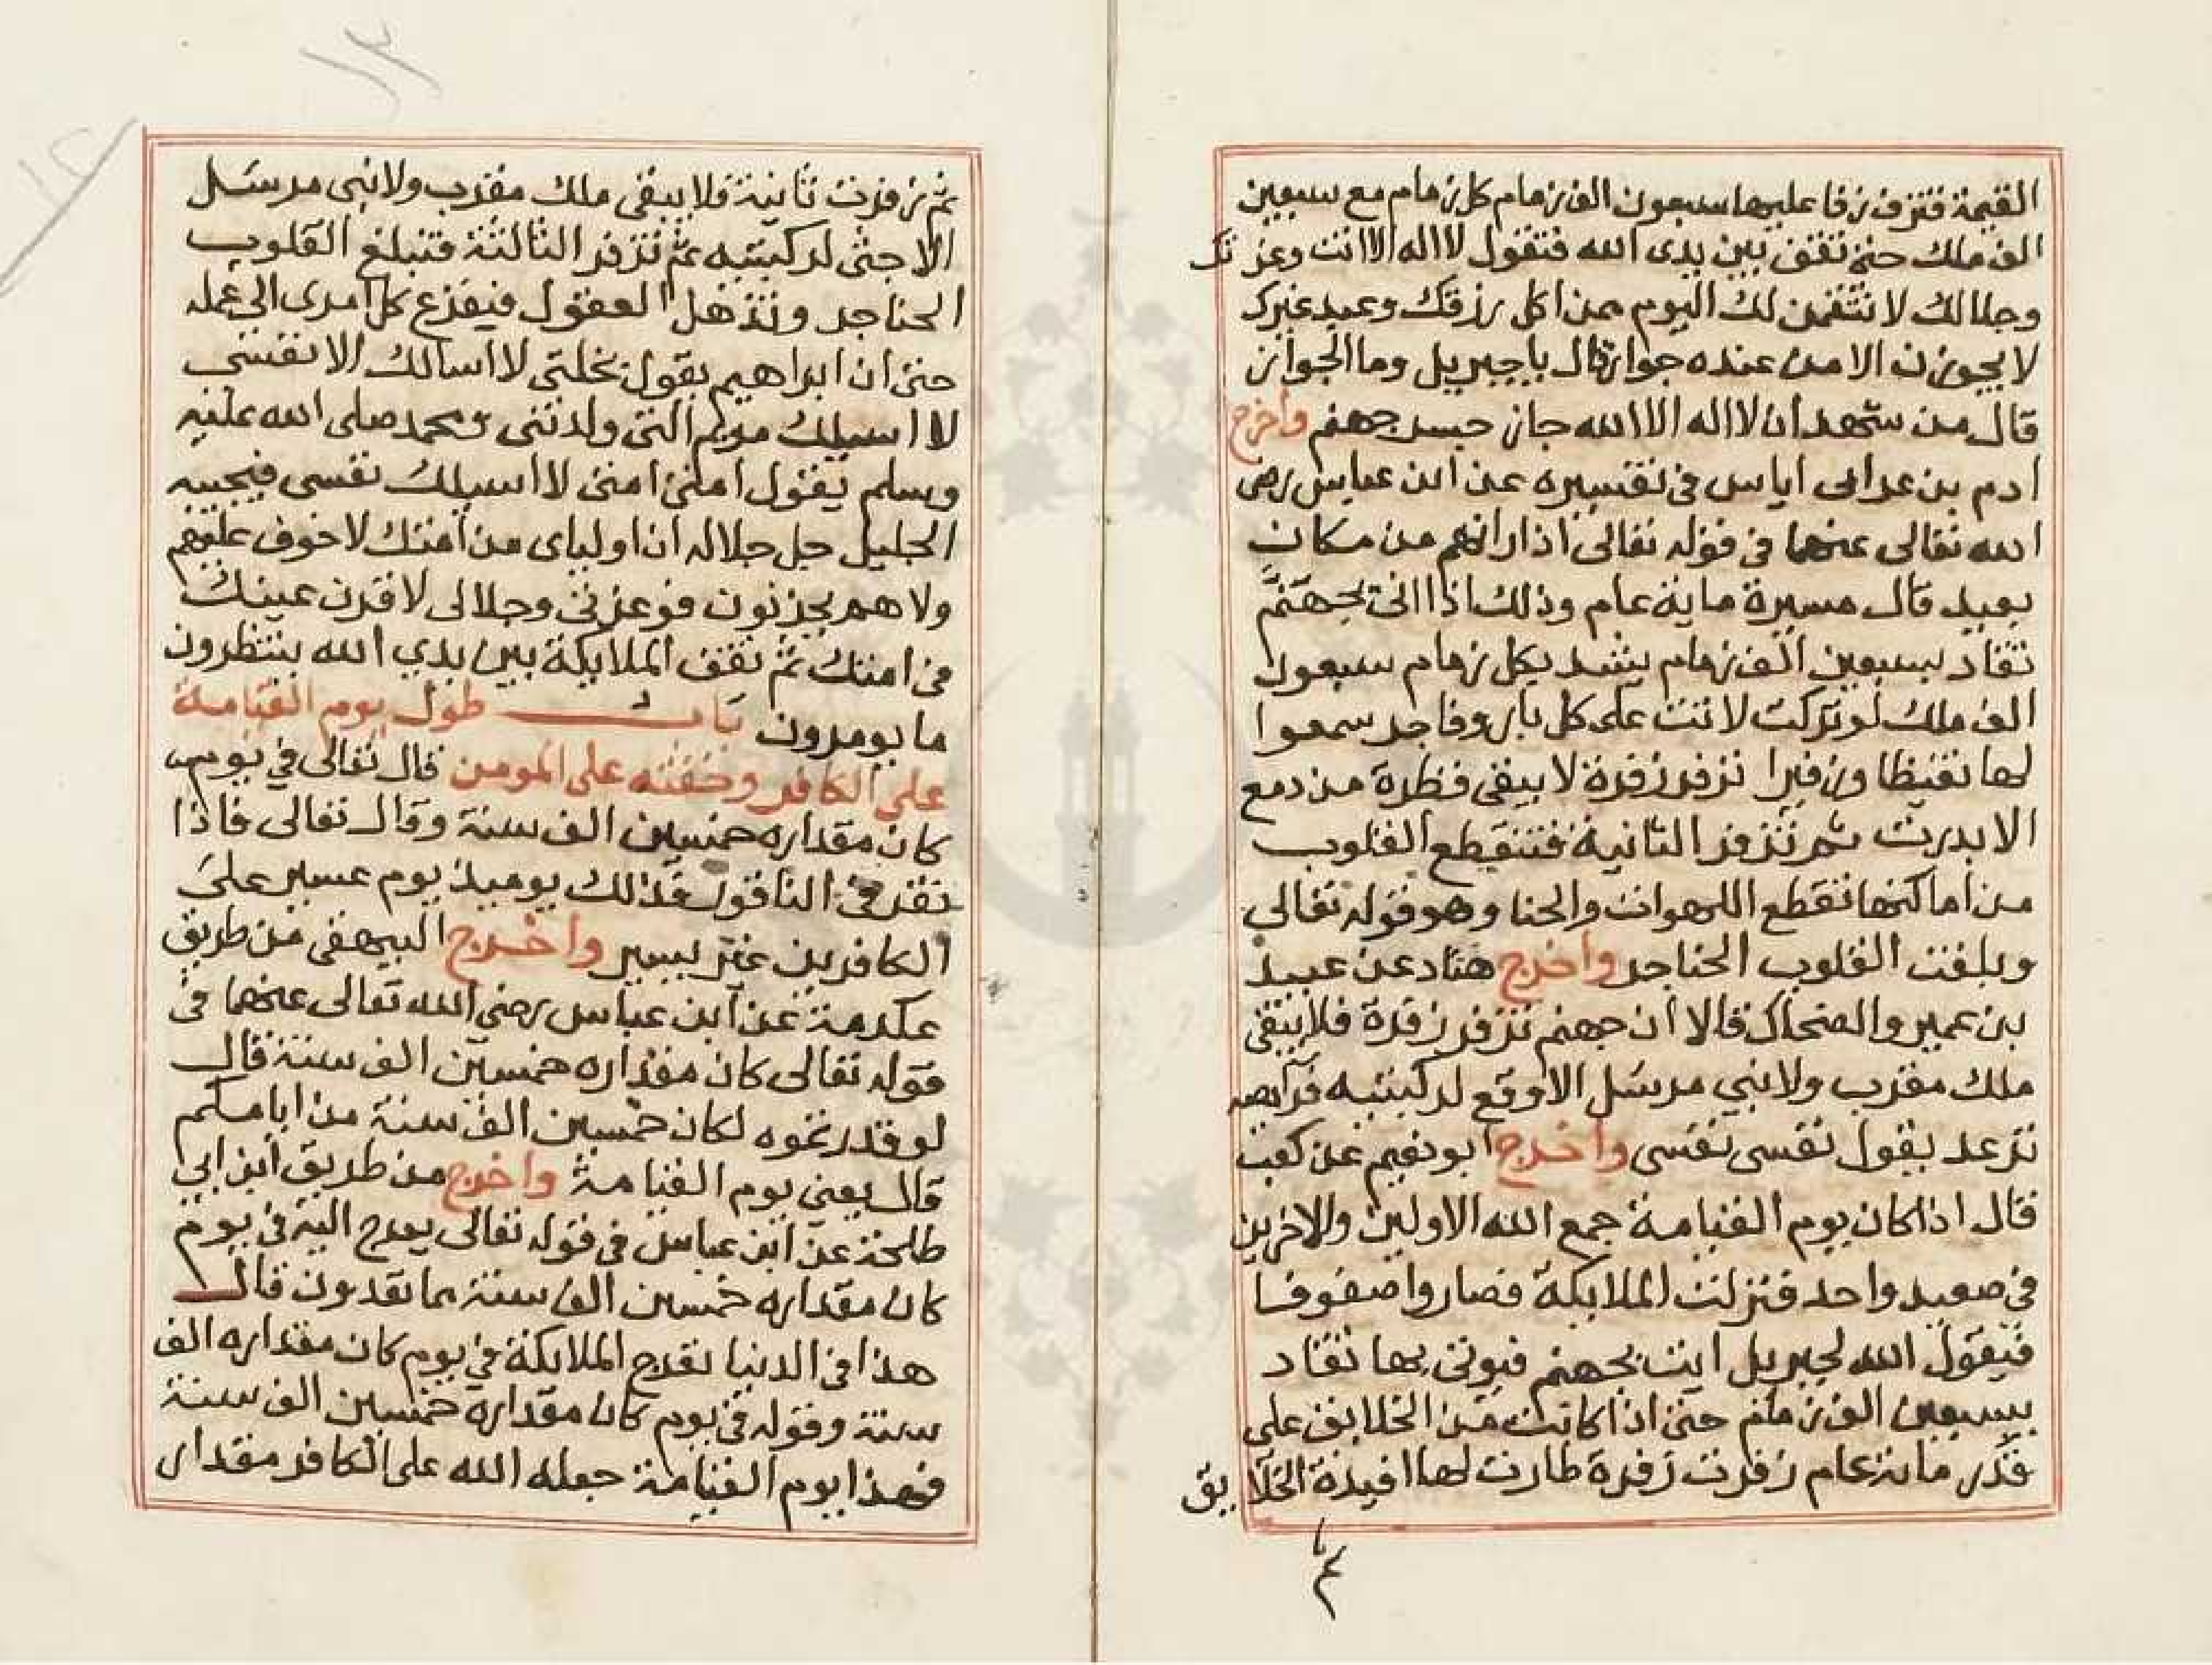 القيمة فتزف زفا عليها سبعون الف زمام كل زمام مع سبعين
الف ملك حتى تقف بين يدى الله فتقول لا اله الا انت وعزتك
وجلالك لانتقمن لك اليوم ممن اكل رزقك وعبد غيرك
لا يجوزن الا من عنده جواز قال يا جبريل وما الجواز
قال من شهد ان لا اله الا الله جاز جسر جهنم واخرج
ادم بن ابى اياس فى تفسيره عن ابن عباس رضى
الله تعالى عنهما فى قوله تعالى اذا راتهم من مكان
بعيد قال مسيرة ماية عام وذلك اذا اتى بجهنم
تقاد بسبعين الف زمام يشد بكل زمام سبعون
الف ملك لو تركت لاتت على كل بار وفاجر سمعوا
لها تغيظا وزفيرا تزفر زفرة لا يبقى قطرة من دمع
الا بدرت ثم تزفر الثانية فتنقطع القلوب
من اماكنها تقطع اللهوات والحنا وهو قوله تعالى
وبلغت القلوب الحناجر واخرج هناد عن عبيد
بن عمير والضحاك قالا ان جهنم تزفر زفرة فلا يبقى
ملك مقرب ولا نبي مرسل الا وقع لركبتيه فرايصه
ترعد يقول نفسى نفسى واخرج ابو نعيم عن كعب
قال اذا كان يوم القيامة جمع الله الاولين والاخرين
فى صعيد واحد فنزلت الملايكة فصاروا صفوفا
فيقول الله لجبريل ايت بجهنم فيوتى بها تقاد
بسبعين الف زمام حتى اذا كانت من الخلايق على
قدر مائة عام زفرت زفرة طارت لها افيدة الخلايق
ثم
ثم زفرت ثانية فلا يبقى ملك مقرب ولا نبى مرسل
الا جثى لركبتيه ثم تزفر الثالثة فتبلغ القلوب
الحناجر وتذهل العقول فيفزع كل امرى الى عمله
حتى ان ابراهيم يقول بخلتى لا اسالك الا نفسى
لا اسيلك مريم التى ولدتنى ومحمد صلى الله عليه
وسلم يقول امتى امتى لا اسيلك نفسى فيجيبه
الجليل جل جلاله ان اولياى من امتك لا خوف عليهم
ولا هم يحزنون فوعزتى وجلالى لاقرن عينك
فى امتك ثم تقف الملايكة بين يدي الله ينتظرون
ما يومرون باب طول يوم القيامة
على الكافر وخفته على المومن قال تعالى في يوم
كان مقداره خمسين الف سنة وقال تعالى فاذا
نقر فى الناقور فذلك يوميذ يوم عسير على
الكافرين غير يسير واخرج البيهقى من طريق
عكرمة عن ابن عباس رضى الله تعالى عنهما فى
قوله تعالى كان مقداره خمسين الف سنة قال
لو قدرتموه لكان خمسين الف سنة من ايامكم
قال يعنى يوم القيامة واخرج من طريق ابن ابي
طلحة عن ابن عباس فى قوله تعالى يعرج اليه فى يوم
كان مقداره خمسين الف سنة مما تعدون قال
هذا فى الدنيا تعرج الملايكة في يوم كان مقداره الف
سنة وقوله فى يوم كان مقداره خمسين الف سنة
فهذا يوم القيامة جعله الله على الكافر مقدار